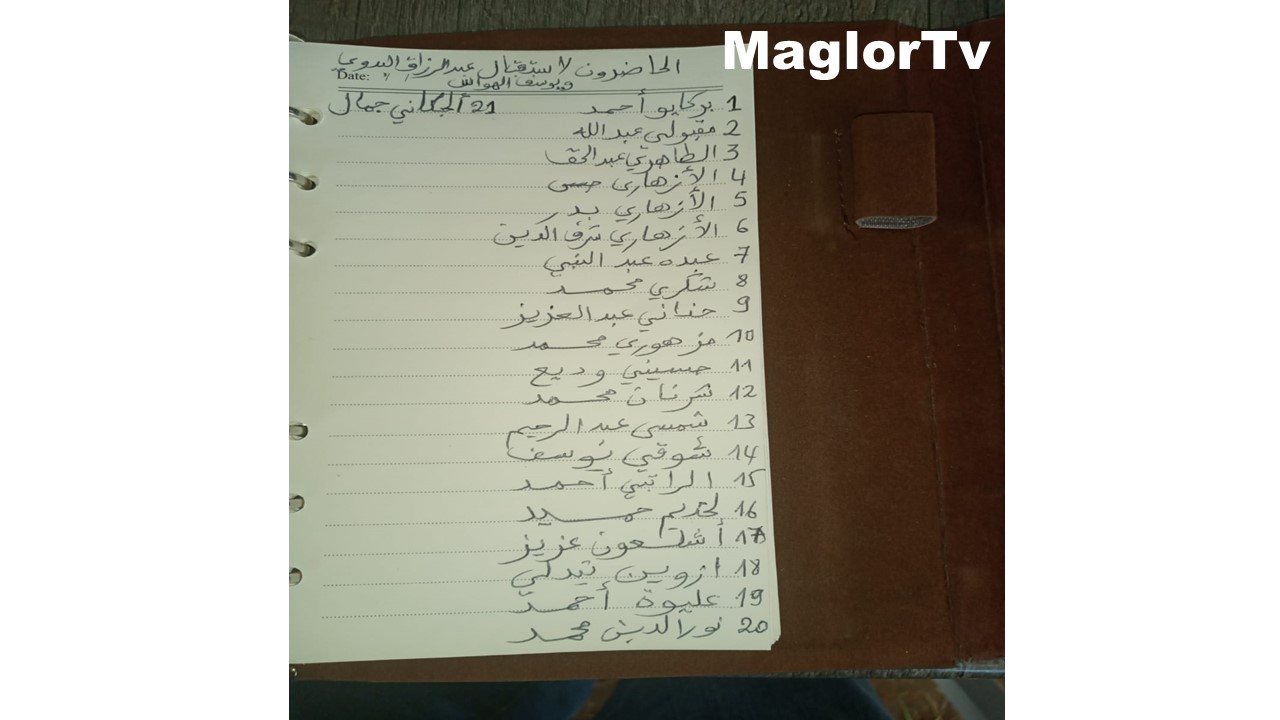 MaglorTv
الحاضرون لاستقبال عبد الرزاق البدوي
Date: ويوسف الهواس
1 بركايو أحمد 21 ألجگاني جمال
2 مقبولي عبد الله
3 الطاهري عبد الحق
4 الأزهاري حسن
5 الأزهاري بدر
6 الأزهاري شرف الدين
7 عبده عبد النبي
8 شكري محمد
9 حناني عبد العزيز
10 مزهوري محمد
11 حسيني وديع
12 شرنان محمد
13 شمسي عبد الرحيم
14 شوقي يوسف
15 الراتبي أحمد
16 لخديم حميد
17 عزيز
18 ازوين
19 عليوة أحمد
20 نور الدين محمد